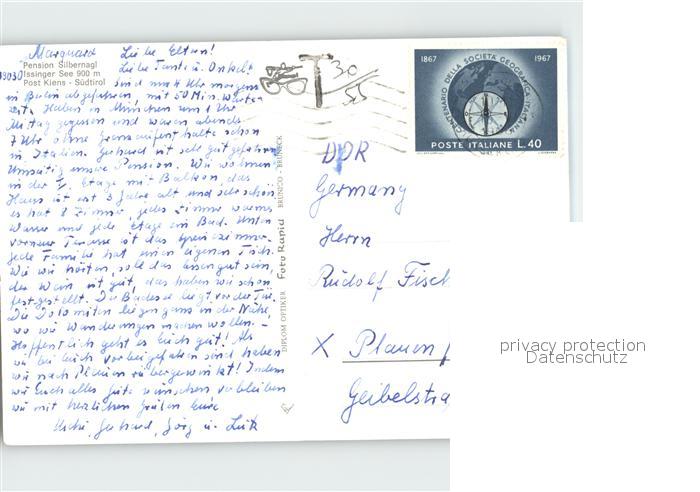 Marquard Liebe Eltern!
Pension Silbernagl
Issinger See 900 m
Post Kiens - Südtirol
39030
Liebe Tante u. Onkel!
Sind um 4 Uhr morgens
in Berlin abgefahren, mit 50 Min. Warte-
zeit. Haben in München um 1 Uhr
Mittag gegessen und waren abends
7 Uhr ohne Grenzaufenthalte schon
in Italien. Gerhard ist sehr gut gefahren
Umseitig unsere Pension. Wir wohnen
in der 1. Etage mit Balkon, das
Haus ist erst 3 Jahre alt und sehr schön
es hat 8 Zimmer, jedes Zimmer warmes
Wasser und jede Etage ein Bad. Unten
vorne Terasse ist das Speisezimmer.
Jede Familie hat einen eigenen Tisch.
Wie wir hörten, soll das Essen gut sein,
der Wein ist gut, das haben wir schon
festgestellt. Der Badesee liegt vor der Tür.
Die Dolomiten liegen ganz in der Nähe,
wo wir Wanderungen machen wollen. -
Hoffentlich geht es Euch gut! Als
wir bei Euch vorbeigefahren sind haben
wir nach Plauen rübergewinkt! Indem
wir Euch alles Gute wünschen verbleiben
wir mit herzlichen Grüßen Eure
Gerhard, Jörg u.
BRUNICO - BRUNECK
Foto Rapid
DIPLOM OPTIKER
T 30/55
1867 1967
CENTENARIO DELLA SOCIETÀ GEOGRAFICA ITALIANA
POSTE ITALIANE L. 40
DDR
Germany
Herrn
Rudolf Fisch
X Plauen /
Geibelstra
privacy protection
Datenschutz